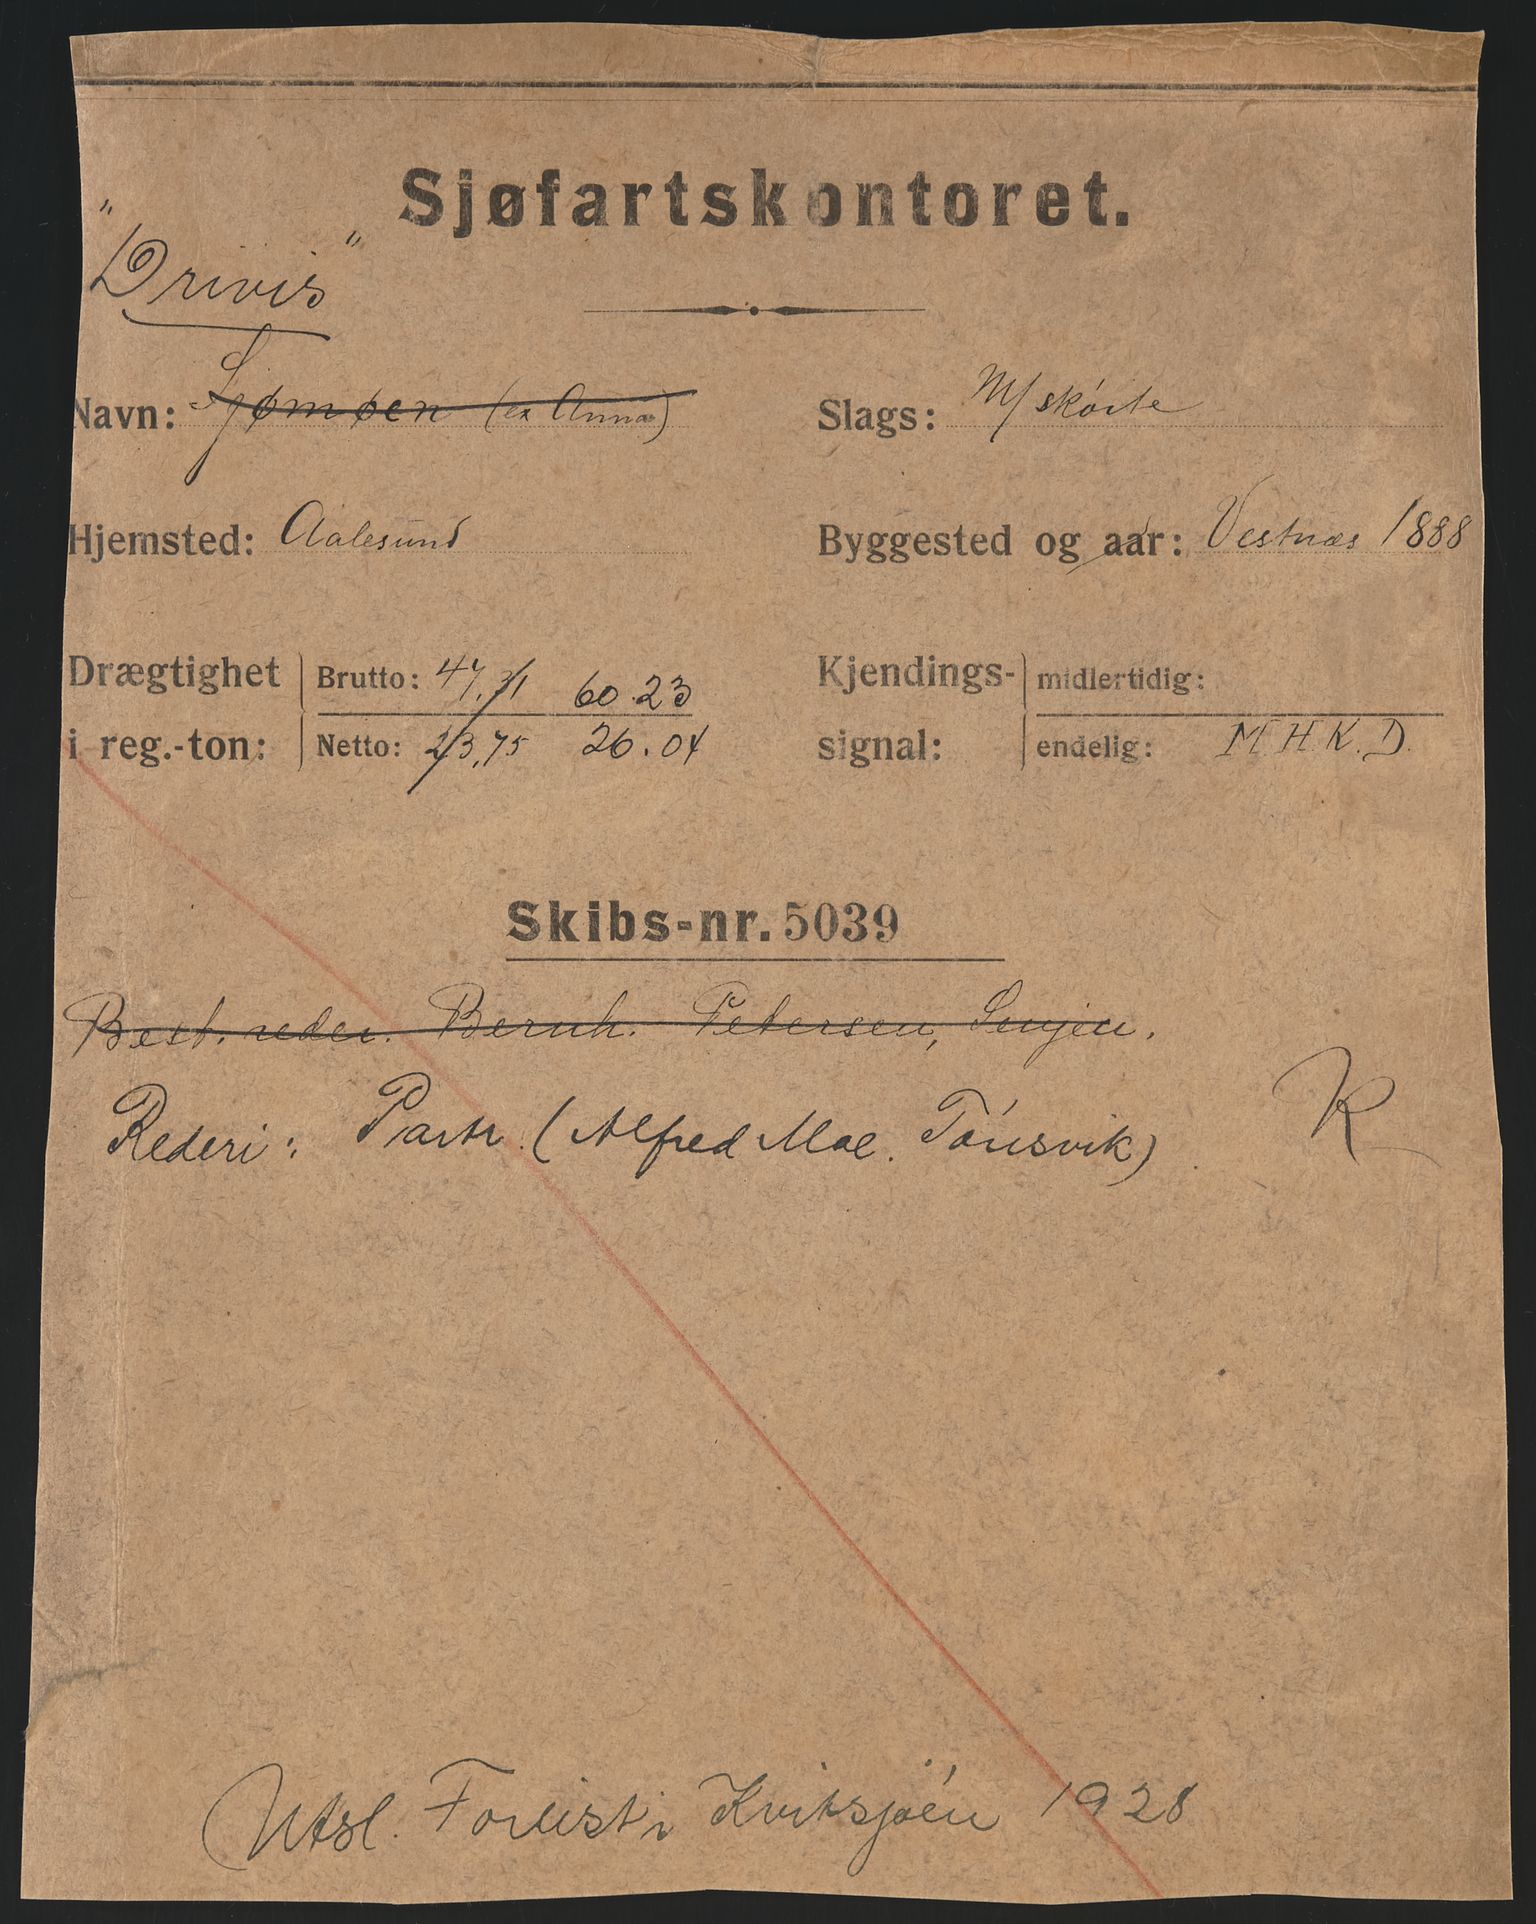 Sjøfartskontoret.
"Drivis"
Navn: Sjømøen (ex Anna)
Slags: M/skóite
Hjemsted: Aalesund
Byggested og aar: Vestnæs 1888
Drægtighet i reg.-ton:
Brutto: 47,31 60.23
Netto: 23,75 26.04
Kjendings-signal:
midlertidig:
endelig: M H K. D.
Skibs-nr. 5039
Best. reder. Bernh. Petersen, Senjen.
Rederi: Partr. (Alfred Moe. Tónsvik)
R
Utsl. Forlist i Kvitsjóen 1928